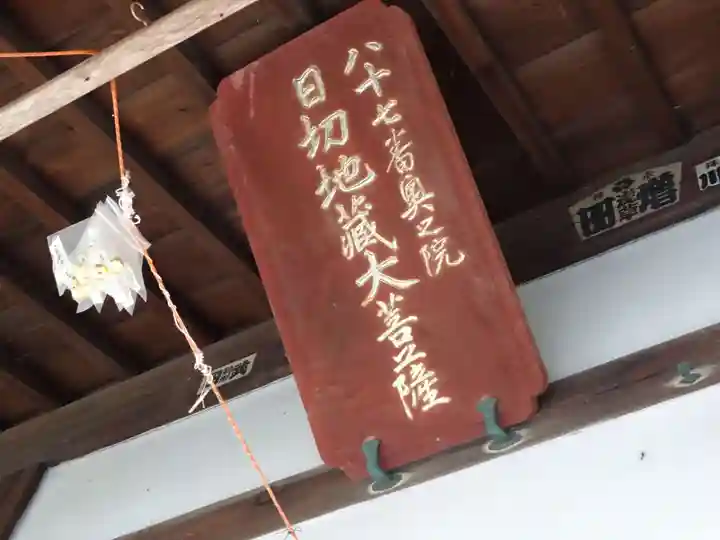 八十七番奥之院
日切地蔵大菩薩
増田